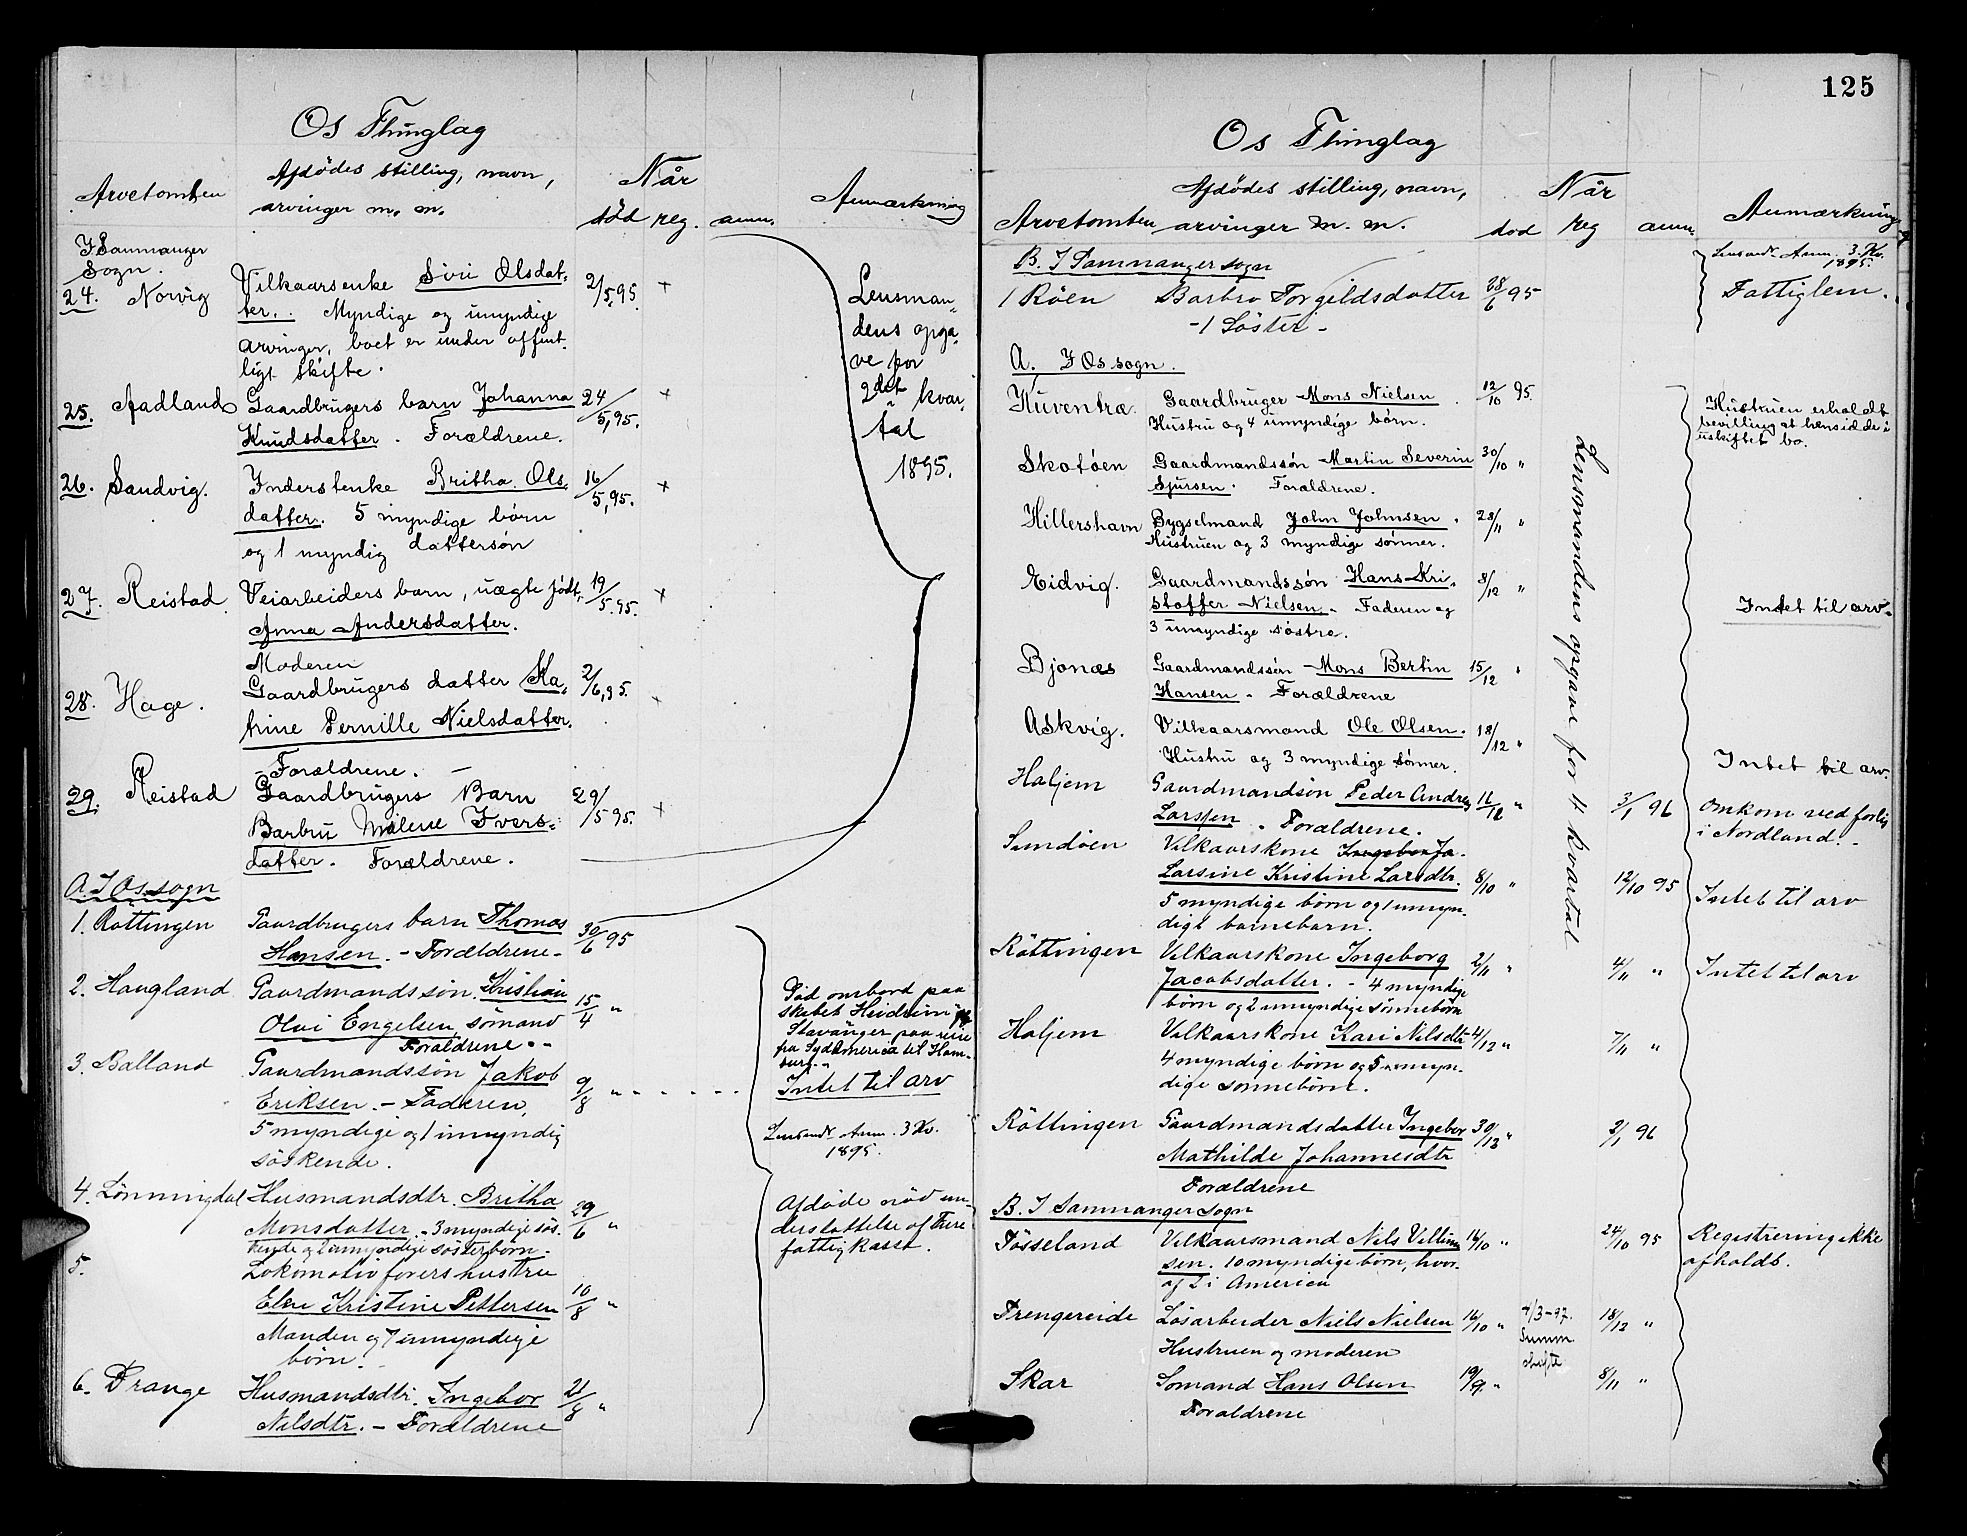 Os Thinglag
Arvetomten
Afdödes stilling, navn,
arvinger m. m.
Når
död reg. anm.
Anmærkning
I Samnanger
Sogn.
24. Norvig
Vilkaarsenke Siri Olsdat-
ter. Myndige og umyndige
arvinger, boet er under offent-
ligt skifte.
2/5, 95. +
Lensman-
dens opga-
ve for
2det kvar-
tal
1895.
25. Aadland
Gaardbrugers barn Johanna
Knudsdatter. Forældrene.
24/5, 95. +
26. Sandvig.
Inderstenke Britha Ols-
datter. 5 myndige börn
og 1 myndig dattersön
16/5, 95. +
27. Reistad
Veiarbeiders barn, uægte födt,
Anna Andersdatter.
Moderen
19/5 95. +
28. Hage.
Gaardbrugers datter Ka-
trine Pernille Nielsdatter.
- Forældrene. -
2/6, 95. +
29. Reistad
Gaardbrugers Barn
Barbru Malene Ivers-
datter. Forældrene.
29/5 95. +
A. I Os sogn
1. Röttingen
Gaardbrugers barn Thomas
Hansen. - Forældrene -
30/6 95
2. Haugland
Gaardmandssön Kristian
Olai Engelsen sömand
Forældrene. -
15/4 "
Död ombord paa
skibet Heidrun
Stavanger paa reise
fra Sydamerica til Ham-
burg.
3. Balland
Gaardmandssön Jakob
Eriksen. - Faderen,
5 myndige og 1 umyndig
söskende.
9/8 "
Intet til arv
Lensmds Anm. 3 Kv.
1895.
4. Lönningdal
Husmandsdtr. Britha
Monsdatter. - 3 myndige sös-
kende og 2 umyndige sösterbörn -
29/6 "
Afdöde nöd un-
derstöttelse af Fure
fattigkasse.
5.
Lokomotivförers hustru
Elen Kristine Pettersen
Manden og 7 umyndige
börn.
10/8 "
6. Drange
Husmandsdtr. Ingebor
Nilsdtr. - Forældrene
21/8 "
125
Os Thinglag
Arvetomten
Afdödes stilling, navn,
arvinger m. m.
Når
död reg anm.
Anmærkning
B. I Samnanger sogn
Lensmds Anm. 3. Kv.
1895.
1 Röen
Barbro Torgeldsdatter
- 1 Söster -
28/6 95
Fattiglem.
A. I Os sogn.
Kuventræ.
Gaardbruger Mons Nielsen.
Hustru og 4 umyndige börn.
12/10 95.
Hustruen erholdt
bevilling at hensidde i
uskiftet bo.
Lensmandens opgave for 4 kvartal
Skotöen
Gaardmandssön Martin Severin
Sjursen. Forældrene.
30/10 "
Hillershavn
Bygselmand John Johnsen.
Hustruen og 3 myndige sönner.
28/11 "
Eidvig.
Gaardmandssön Hans Kri-
stoffer Nielsen. Faderen og
3 umyndige söstre.
8/12 "
Intet til arv.
Bjonæs
Gaardmandssön Mons Bertin
Hansen - Forældrene
15/12 "
Askvig.
Vilkaarsmand Ole Olsen.
Hustru og 3 myndige sönner.
18/12 "
Intet til arv.
Haljem
Gaardmandsön Peder Andreas
Larssen. Forældrene.
16/12 "
3/1 96
Omkom ved forlis
i Nordland. -
Sundöen
Vilkaarskone
Larsine Kristine Larsdtr.
5 myndige börn og 1 umyn-
digt barnebarn.
8/10 "
12/10 95
Intet til arv
Röttingen
Vilkaarskone Ingeborg
Jacobsdatter. - 4 myndige
börn og 2 umyndige sönnebörn
2/11 "
4/11 "
Intet til arv
Haljem
Vilkaarskone Kari Nilsdtr
4 myndige börn og 5 umyn-
dige sönnebörn.
4/12 "
7/11 "
Röttingen
Gaardmandsdatter Ingebor
Mathilde Johannesdtr
Forældrene
30/12 "
2/1 96
B. I Samnanger sogn
Tösseland
Vilkaarsmand Nils Villum
sen. 10 myndige börn, hvor-
af 2 i America
14/10 "
24/10 95
Registrering ikke
afholdt.
Trengereide
Lösarbeider Niels Nielsen
Hustruen og moderen
16/10 "
4/3-97.
Summ.
skifte
18/12 "
Skar
Sömand Hans Olsen
Forældrene
19/9 "
8/11 "